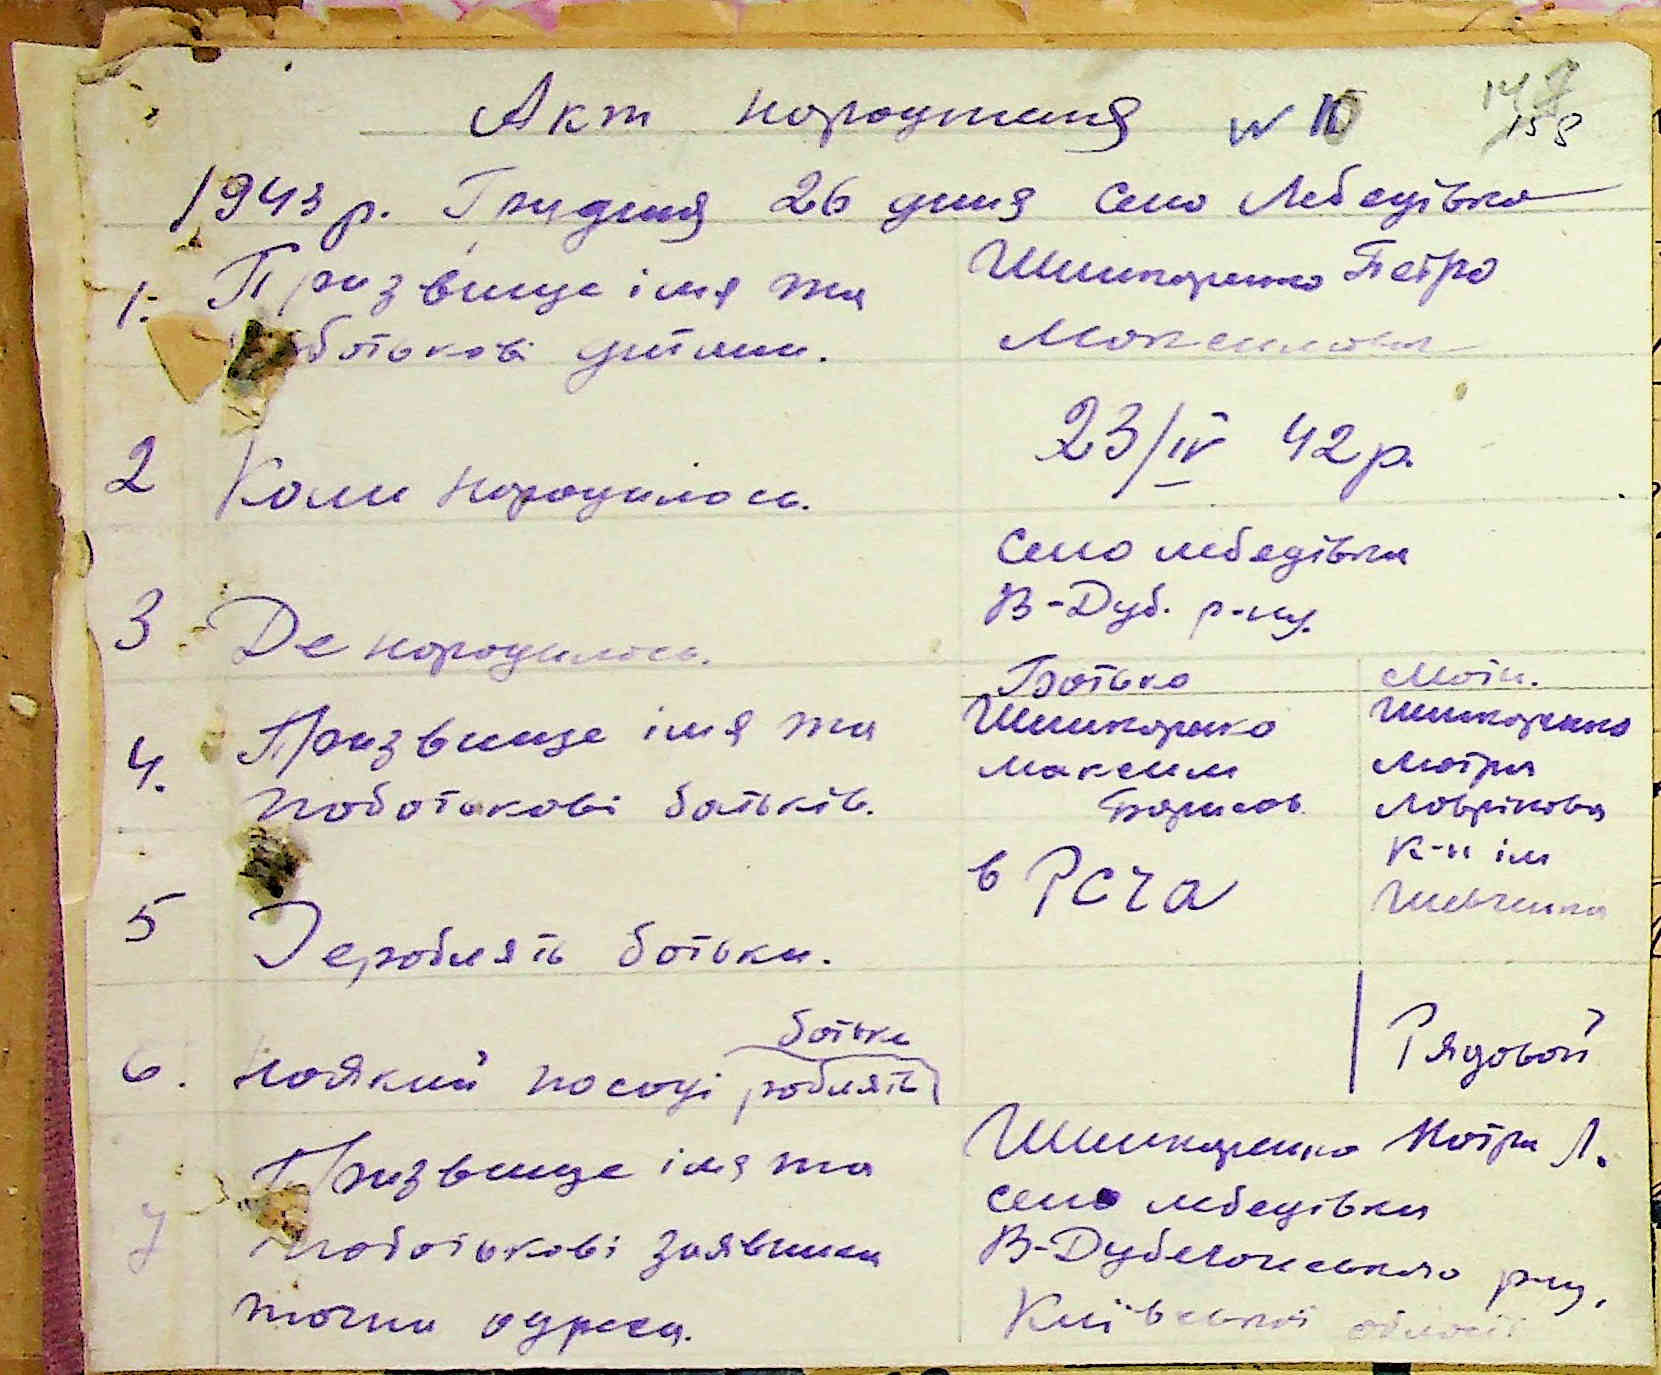 Акт народження № 10
158
1943 р. Грудня 26 дня село Лебедівка
1. Призвище імя та
батькові дитини.
Шишкаренко Петро
Максимович
2 Коли народилось.
23/IV 42 р.
3 Де народилось.
село лебедівка
В-Дуб. р-ну.
4. Призвище імя та
побатькові батьків.
Батько
Шишкаренко
Максим
Борисов
Мати.
Шишкаренко
Мотря
Лаврікова
5 Де роблять батьки.
в РСЧА
К-п ім
Шевченка
6. На якій посаді батьки роблять
Рядовой
7 Призвище імя та
побатькові заявника
точна адреса.
Шишкаренко Мотря Л.
село лебедівка
В-Дубечанського р-ну,
Київської області